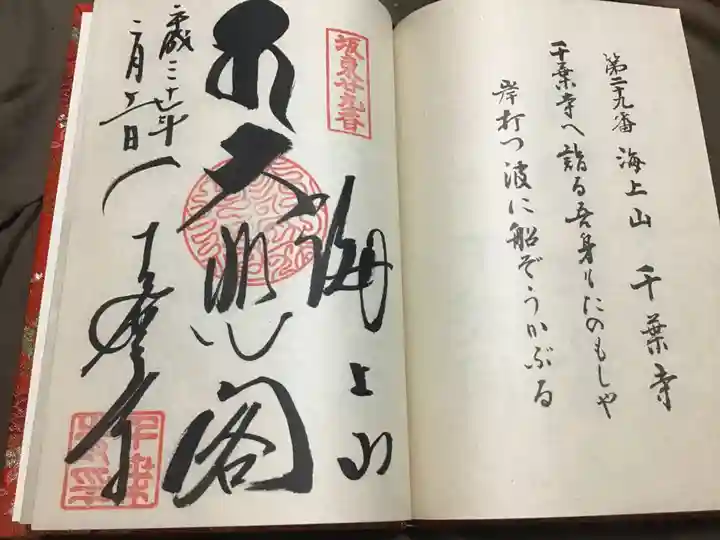 第二十九番 海上山 千葉寺
千葉寺へ詣る吾身もたのもしや
岸打つ波に船ぞうかぶる
坂東廿九番
海上山
大悲閣
千葉寺
平成三十年
二月
日